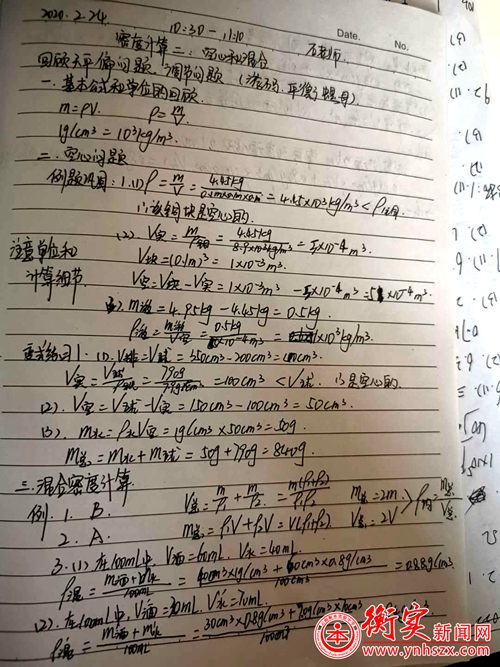 2020.2.24
10:30-11:10
Date.
No.
密度计算二：空心和混合
石老师
回顾天平偏问题.调节问题（游码.平衡螺母）
一.基本公式和单位的回顾.
m=ρV. ρ=m/V.
1g/cm³=10³kg/m³.
二.空心问题
例题巩固：1.(1)ρ=m/V=4.45kg/ =4.45×10³kg/m³<ρ铜
∴该铜块是空心的.
(2).V实=m/ρ铜=4.45kg/8.9×10³kg/m³=5×10⁻⁴m³.
注意单位和
V铁=(0.1m)³=1×10⁻³m³
计算细节.
V空=V铁-V实=1×10⁻³m³-5×10⁻⁴m³=5×10⁻⁴m³.
(3).m液=4.95kg-4.45kg=0.5kg.
ρ液=m液/V空=0.5kg/5×10⁻⁴m³=1×10³kg/m³.
练习1.(1).V排=V球=350cm³-200cm³=
V实= =790g/ =100cm³<V球. ∴是空心的
(2).V空=V球-V实=150cm³-100cm³=50cm³.
(3).m水=ρ水V空=1g/cm³×50cm³=50g.
m总=m水+m球=50g+790g=840g.
三.混合密度计算.
例.1.B.
V总=m/ρ₁+m/ρ₂=m(ρ₁+ρ₂)/ρ₁ρ₂ m总=2m
2.A.
m总=ρ₁V+ρ₂V=V(ρ₁+ρ₂) V总=2V
3.(1).在100mL中.V酒=60mL.V水=40mL.
ρ混=m酒+m水/100mL=40cm³×1g/cm³+60cm³×0.8g/cm³/100cm³=0.88g/cm³.
(2).在100mL中.V酒=30mL.V水=70mL.
ρ混=m酒+m水/100mL=
衡实新闻网
www.ynhszx.com